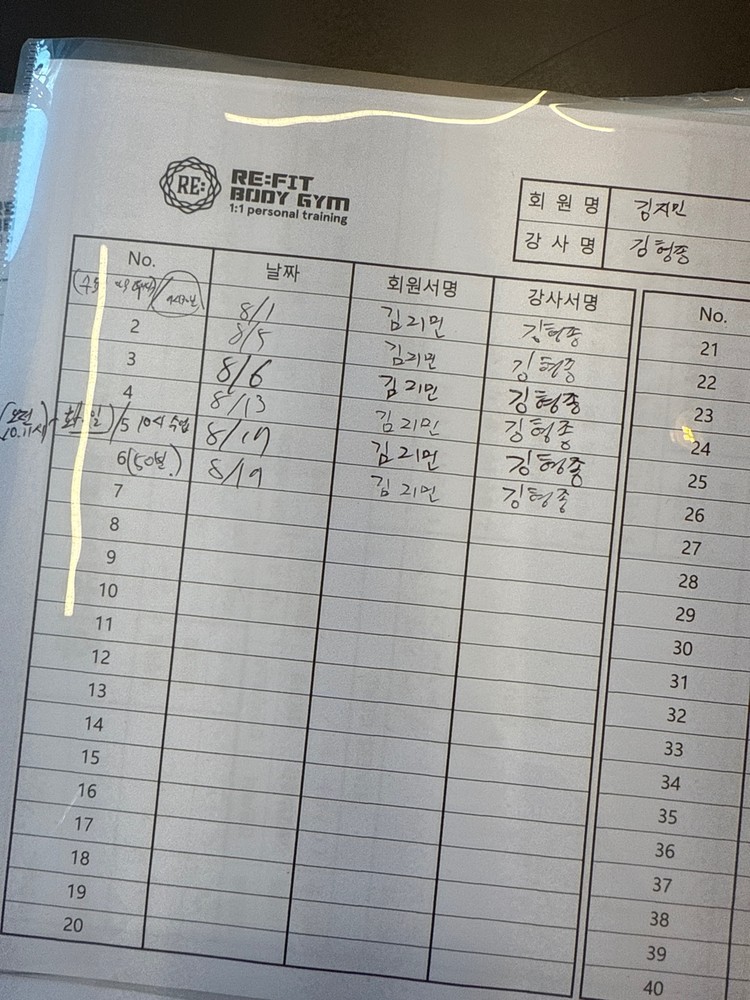 RE:
RE:FIT
BODY GYM
1:1 personal training
회 원 명 김지민
강 사 명 김형종
No. 날짜 회원서명 강사서명
8/1 김지민 김형종
2 8/5 김지민 김형종
3 8/6 김지민 김형종
4 8/13 김지민 김형종
5 10시 수업 8/17 김지민 김형종
6 (50분.) 8/19 김지민 김형종
7
8
9
10
11
12
13
14
15
16
17
18
19
20
No.
21
22
23
24
25
26
27
28
29
30
31
32
33
34
35
36
37
38
39
40